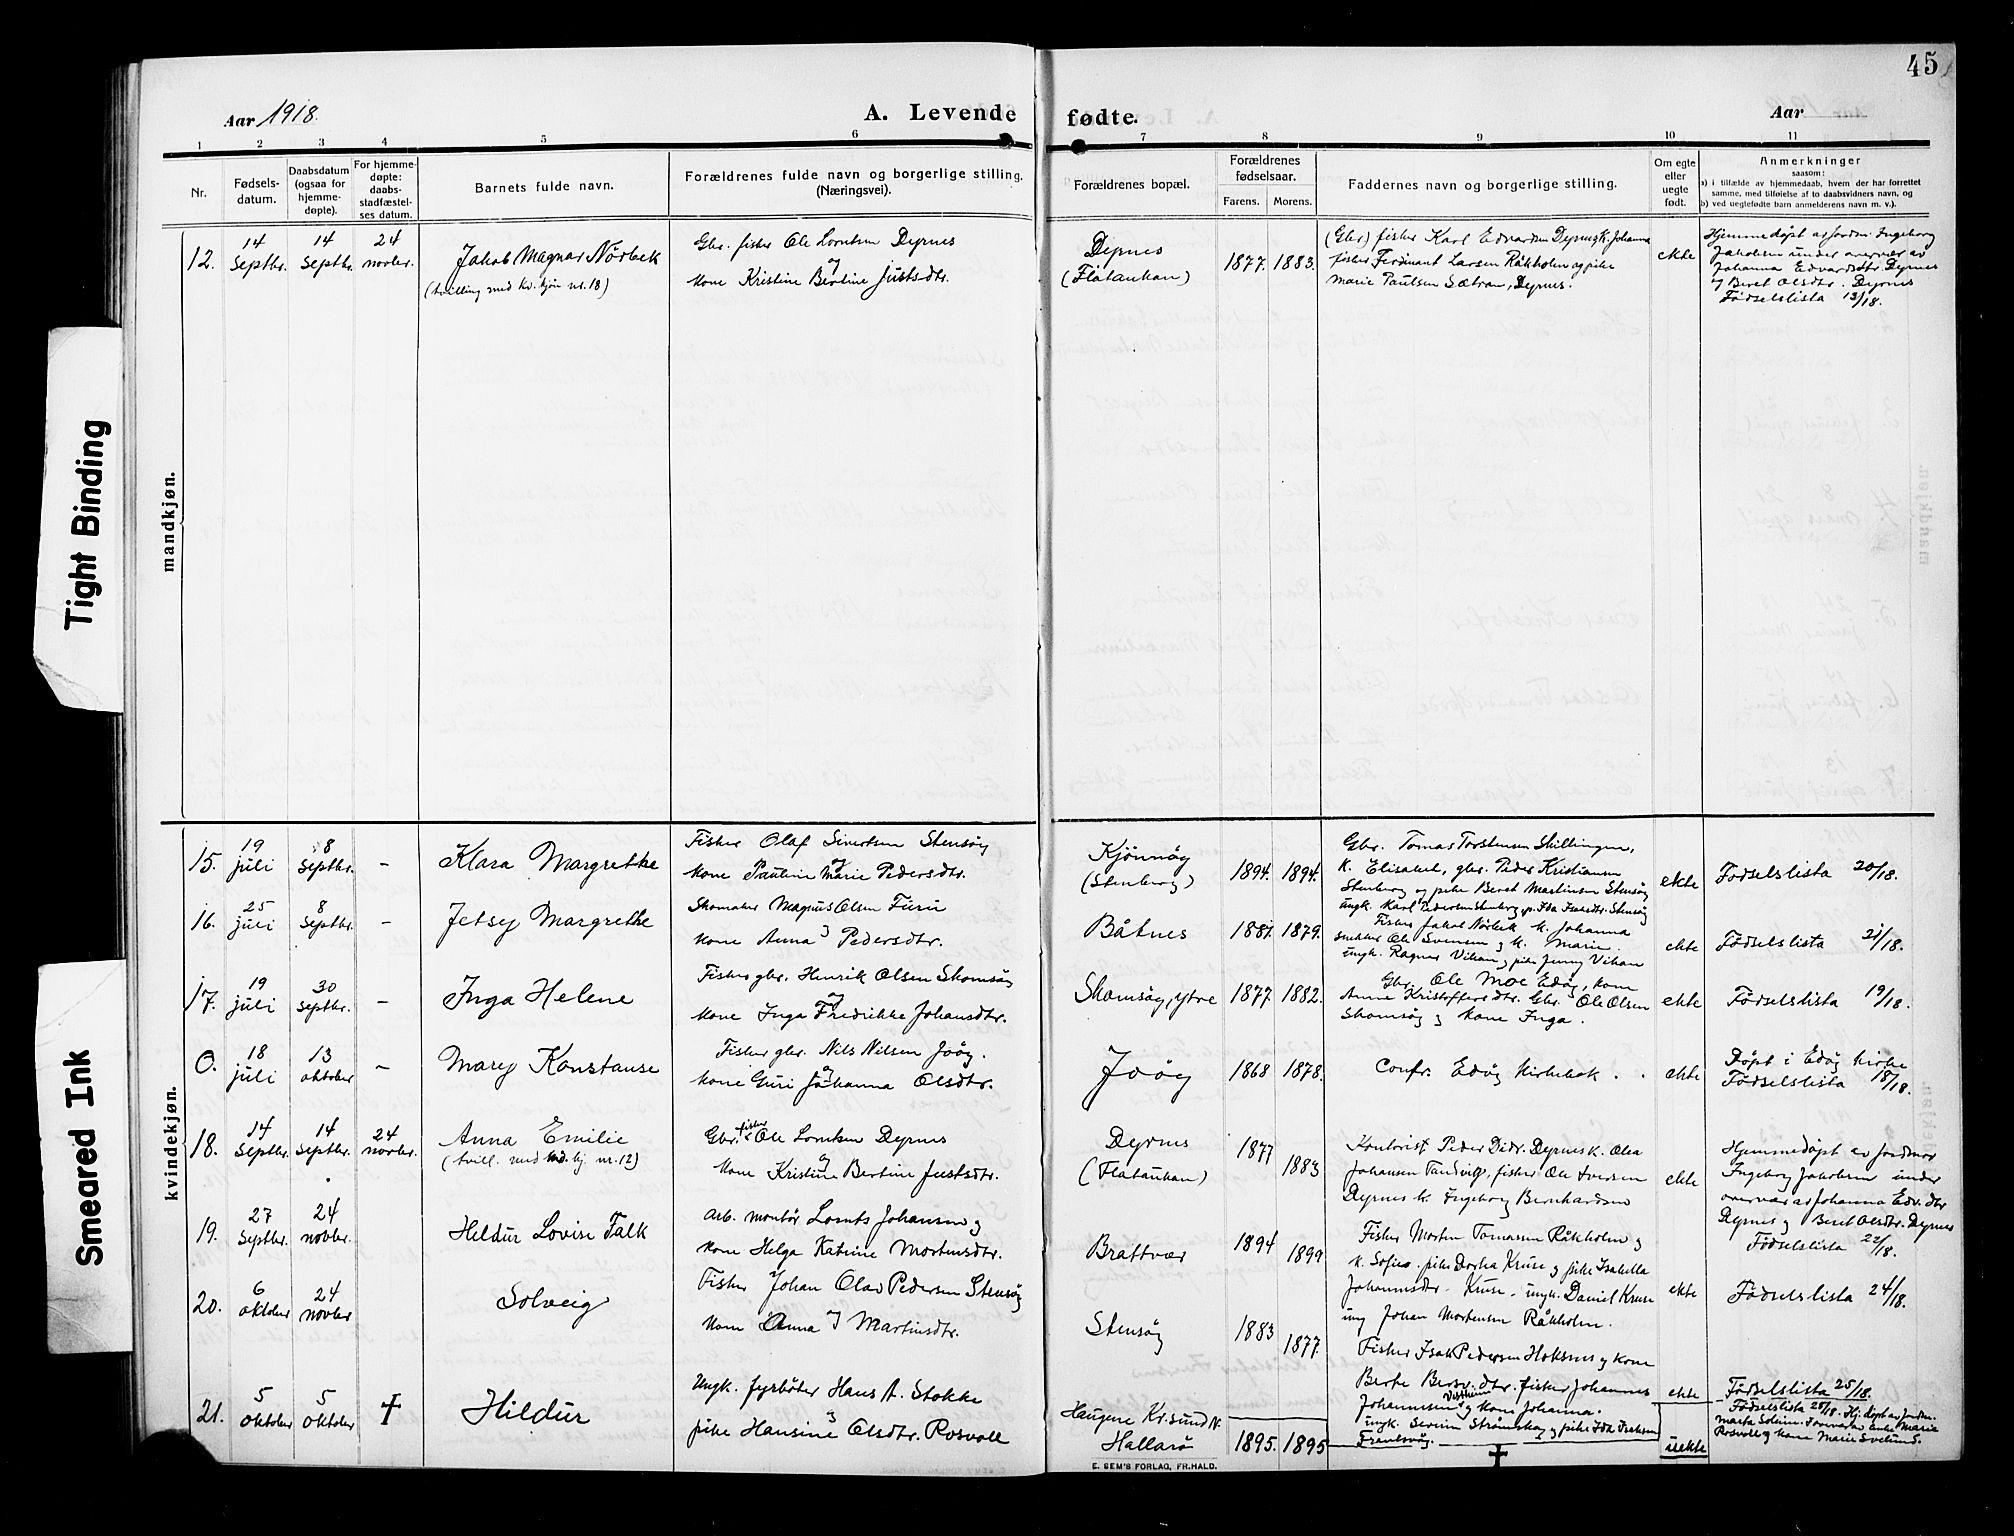 45
Aar 1918.
A. Levende fødte.
Aar
1 2 3 4 5 6 7 8 9 10 11
Nr.
Fødsels-
datum.
Daabsdatum
(ogsaa for
hjemme-
døpte).
For hjemme-
døpte:
daabs-
stadfæstel-
ses datum.
Barnets fulde navn.
Forældrenes fulde navn og borgerlige stilling.
(Næringsvei).
Forældrenes bopæl.
Forældrenes
fødselsaar.
Farens. Morens.
Faddernes navn og borgerlige stilling.
Om egte
eller
uegte
født.
Anmerkninger
saasom:
a) i tilfælde av hjemmedaab, hvem der har forrettet
samme, med tilføielse af to daabsvidners navn, og
b) ved uegtefødte barn anmelderens navn m. v.).
mandkjøn.
12.
14
Septbr.
14
Septbr.
24
novbr.
Jakob Magnar Nörbek
(tvilling med kv. kjön nr. 18)
Gbr. fisker Ole Lorntsen Dyrnes
og
kone Kristine Bertine Justsdtr.
Dyrnes
(Flataukan)
1877. 1883.
(Gbr.) fisker Karl Edvardsen Dyrnes k. Johanna
fisker Ferdinant Larsen Råkholm og pike
Marie Paulsen Sætran, Dyrnes.
ekte
Hjemmedöpt av jordm. Ingeborg
Jakobsen under overvær av
Johanna Edvardsdtr. Dyrnes
og Beret Olsdtr. Dyrnes
Födselslista 13/18.
kvindekjøn.
15.
19
juli
8
Septbr.
–
Klara Margrethe
Fisker Olaf Sivertsen Stensöy
og
kone Pauline Marie Pedersdtr.
Kjönnöy
(Stenberg)
1894. 1894.
Gbr. Tomas Torstensen Skillingen,
k. Elisabet, gbr. Peder Kristiansen
Stenberg og pike Beret Martinsen Stensöy
ungk. Karl Pedersen Stenberg, p. Ida Isaksdtr. Stensöy
ekte
Födselslista 20/18.
16.
25
juli
8
Septbr.
–
Jetsey Margrethe
Skomaker Magnus Olsen Furu
og
kone Anna Pedersdtr.
Båtnes
1881. 1879.
Fisker Jakob Nörbek k. Johanna
snekker Ole Svensen og k. Marie.
ungk. Ragnar Vikan og pike Jenny Vikan
ekte
Födselslista 21/18.
17.
19
juli
30
Septbr.
–
Inga Helene
Fisker gbr. Henrik Olsen Skomsöy
og
kone Inga Fredrikke Johansdtr.
Skomsöy, ytre
1877. 1882.
Gbr. Ole Moe Edöy, kone
Anne Kristoffersdtr. Gbr. Ole Olsen
Skomsöy og kone Inga.
ekte
Födselslista 19/18.
0.
18
juli
13
oktober
–
Marey Konstanse
Fisker gbr. Nils Nilsen Joöy.
og
kone Guri Johanna Olsdtr.
Joöy
1868 1878.
Confr. Edöy kirkebok.
ekte
Döpt i Edöy kirke
Födselslista 18/18.
18.
14
Septbr.
14
Septbr.
24
novbr.
Anna Emilie
(tvill. med md. kj. nr. 12)
Gbr. fisker Ole Lorntsen Dyrnes
og
kone Kristine Bertine Justsdtr.
Dyrnes
(Flataukan)
1877 1883
Kontorist Peder Didr. Dyrnes k. Olea
Johansen Tandvig, fisker Ole Iversen
Dyrnes k. Ingeborg Bernhardsen
ekte
Hjemmedöpt av jordmor
Ingeborg Jakobsen under
overvær av Johanna Edv. dtr
Dyrnes og Beret Olsdtr. Dyrnes
Födselslista 22/18.
19.
27
Septbr.
24
novbr.
Heldur Lovise Falk
Arb. montör Lornts Johansen og
kone Helga Katrine Mortensdtr.
Brattvær
1894 1899
Fisker Morten Tomassen Råkholm og
k. Sofie. pike Dortea Kruse og pike Isabella
Johannesdtr. Kruse. ungk. Daniel Kruse
ung Johan Mortensen Råkholm.
ekte
Födselslista 24/18.
20.
6
oktober
24
novbr
Solveig
Fisker Johan Olav Pedersen Stensöy
kone Anna og Martinsdtr.
Stensöy
1883 1877.
Fisker Isak Pedersen Hoksnes og kone
Berte Bersv. dtr. fisker Johannes
Johannesen Vestheim og kone Johanna.
ungk. Severin Strömskag og pike Ida Isaksen
ekte
Födselslista 25/18.
21.
5
oktober
5
oktober
✝
Hildur
Ungk. fyrböter Hans A. Stokke
og
pike Hansine Olsdtr. Rosvoll
Haugene Kr.sund N.
Hallarö
1895. 1895
✝
uekte
Födselslista 28/18. Hj. döpt av jordm.
Marta Solem. Overvær av Enke Marie
Rosvoll og kone Marie Svelund S.
E. SEM'S FORLAG, FR.HALD.
Tight Binding
Smeared Ink